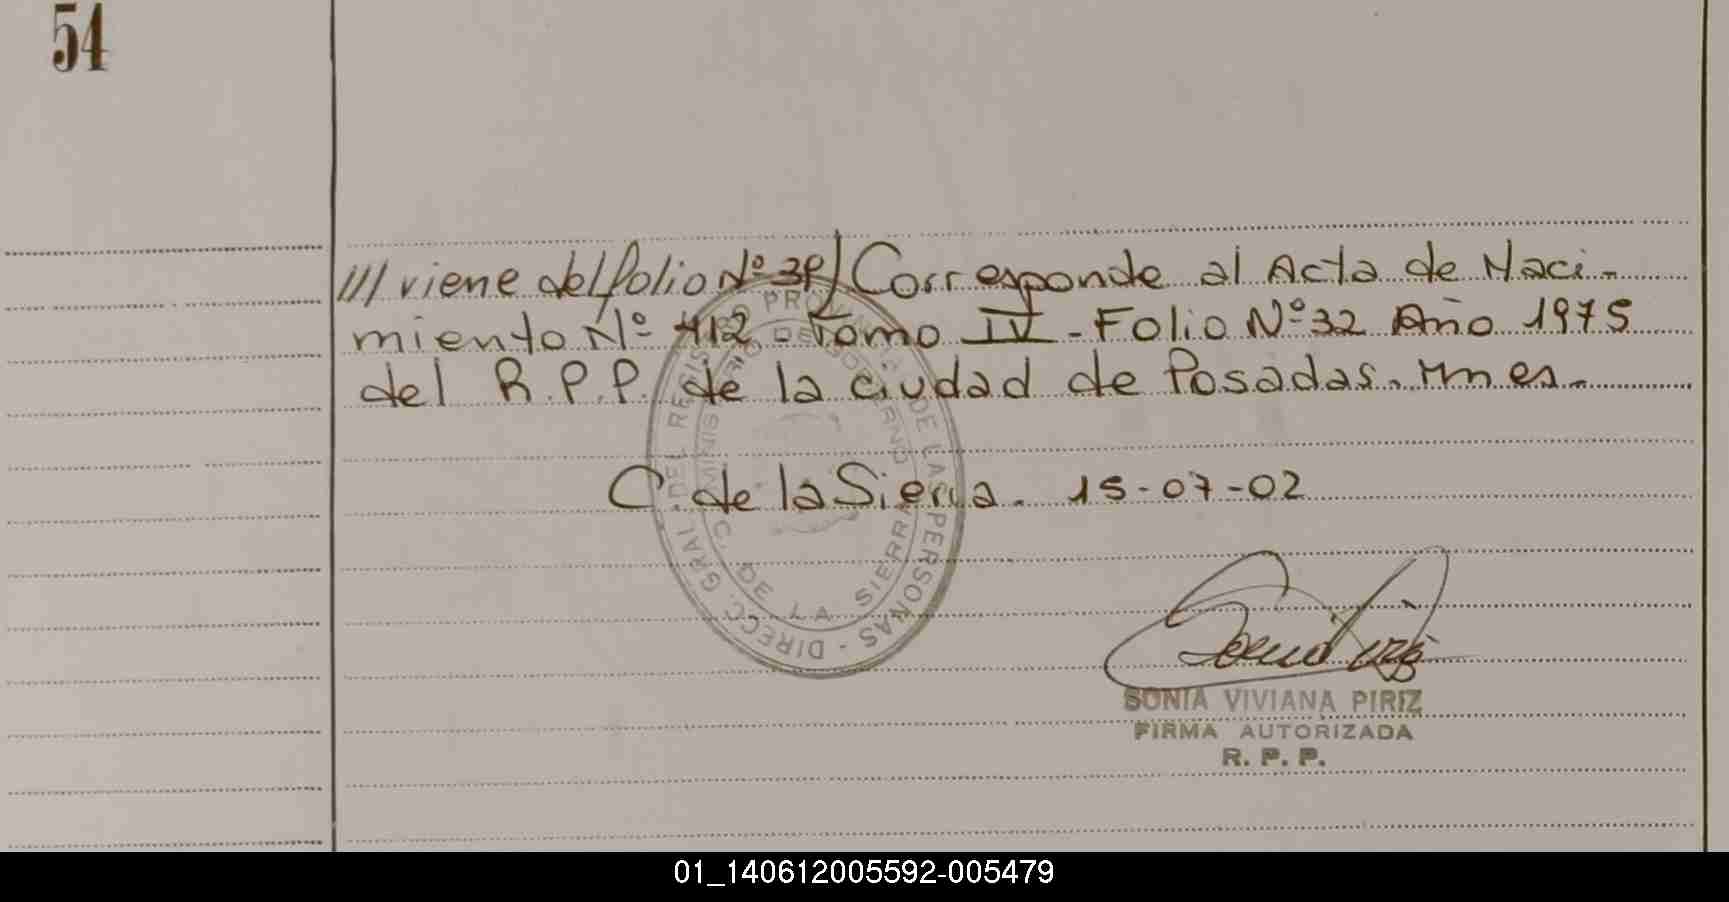 54
/// viene del folio Nº 39/ Corresponde al Acta de Naci-
miento Nº 412 Tomo IV - Folio Nº 32 Año 1975
del R.P.P. de la ciudad de Posadas. Mnes.
C de la Sierra. 15-07-02
DIRECC. GRAL. DEL REGISTRO PROVINCIAL DE LAS PERSONAS -
MINISTERIO DE GOBIERNO
C. DE LA SIERRA
SONIA VIVIANA PIRIZ
FIRMA AUTORIZADA
R. P. P.
01_140612005592-005479